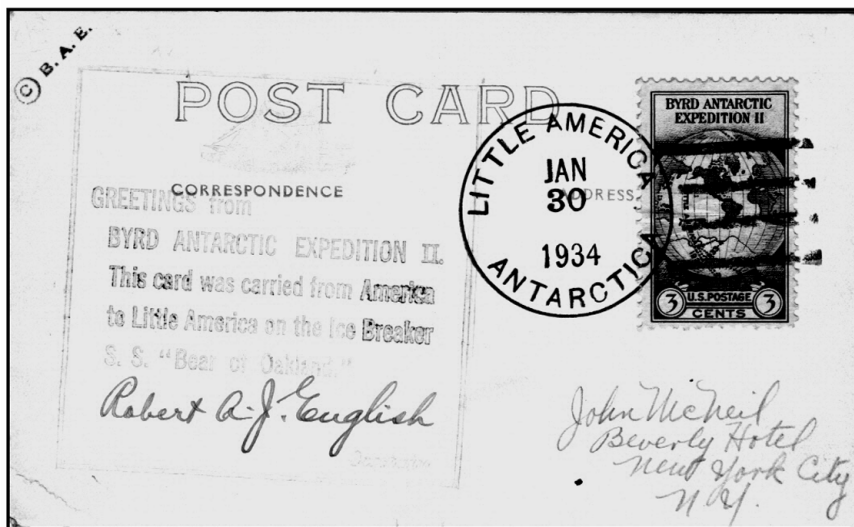 © B. A. E.
POST CARD
CORRESPONDENCE
ADDRESS
GREETINGS from
BYRD ANTARCTIC EXPEDITION II.
This card was carried from America
to Little America on the Ice Breaker
S. S. "Bear of Oakland."
Robert A. J. English
LITTLE AMERICA
JAN
30
1934
ANTARCTICA
BYRD ANTARCTIC
EXPEDITION II
3 U.S. POSTAGE 3
CENTS
John McNeil
Beverly Hotel
New York City
N Y.